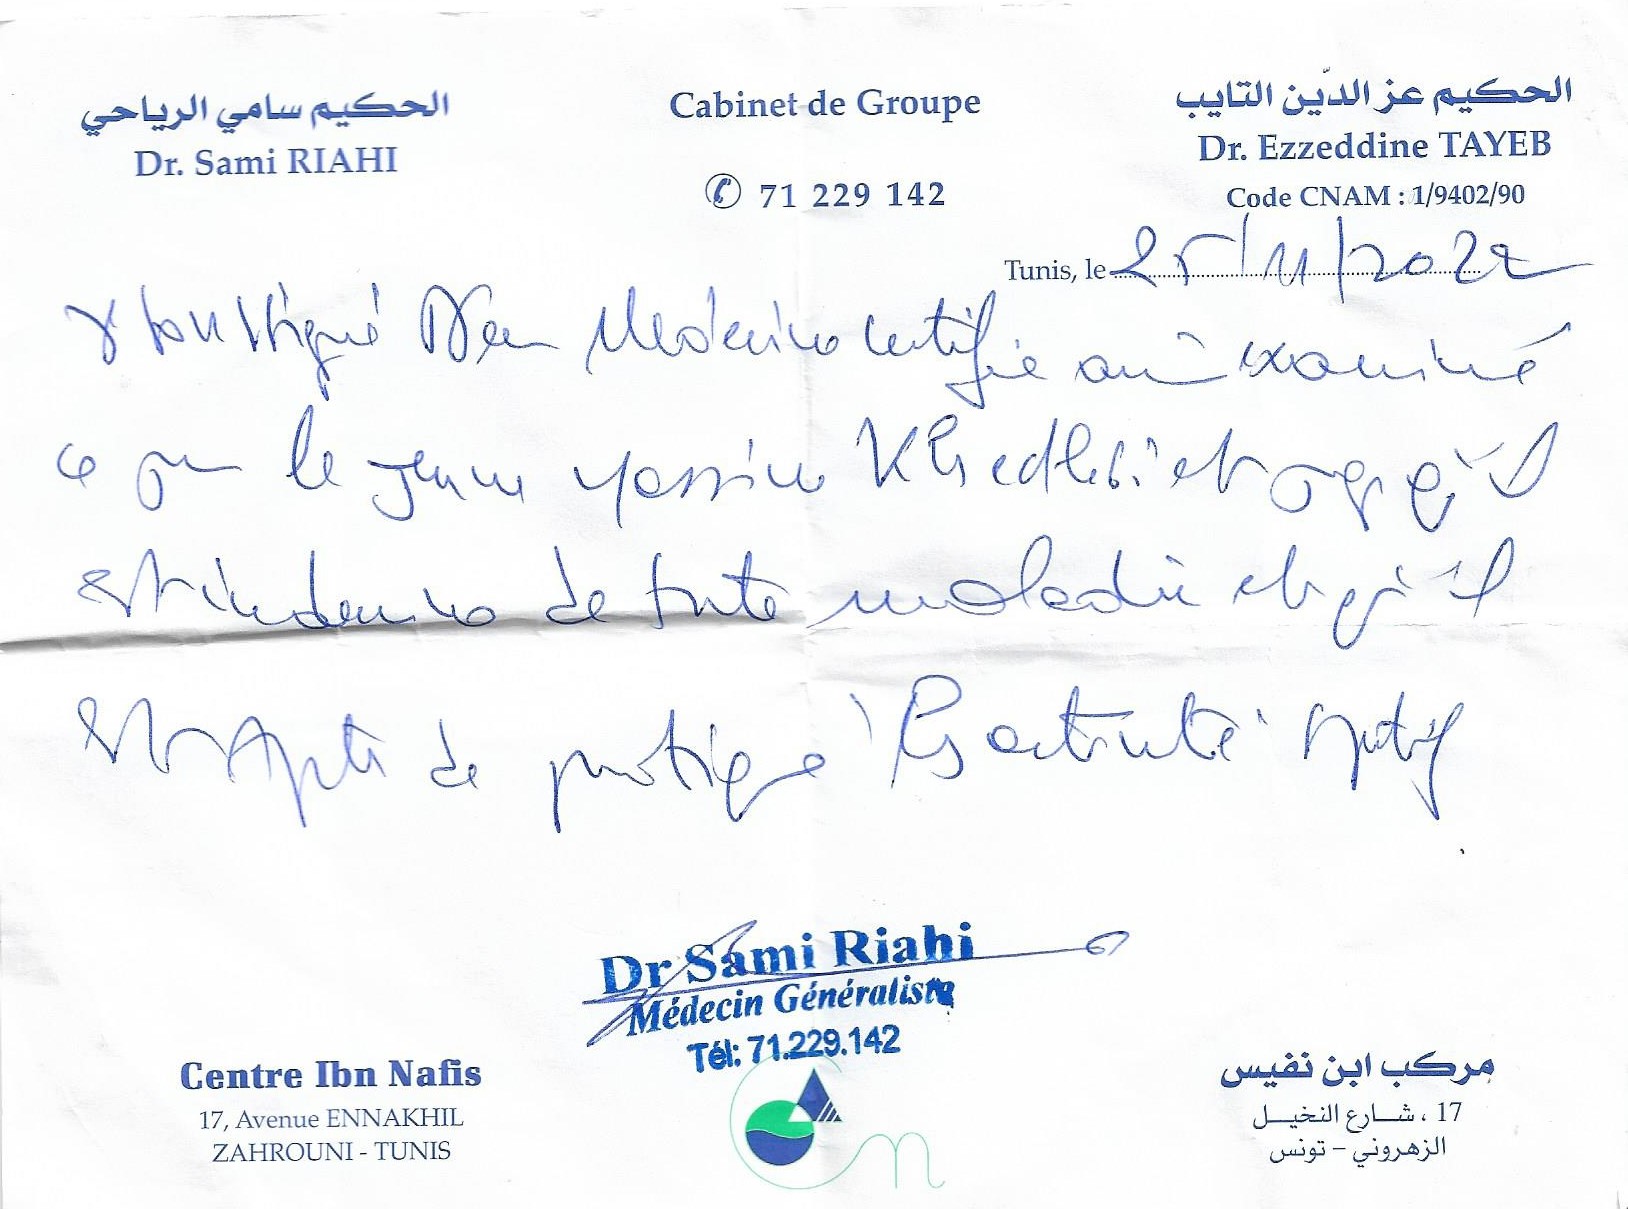 الحكيم سامي الرياحي
Dr. Sami RIAHI
Cabinet de Groupe
71 229 142
الحكيم عز الدّين التايب
Dr. Ezzeddine TAYEB
Code CNAM : 1/9402/90
Tunis, le 25/11/2022
soussigné Médecine certifie avoir examiné
ce jour le jeune Yassine Khedhiri et qu'il
est indemne de toute maladie et qu'il
est Apte de pratiquer les activités sportif
Dr Sami Riahi
Médecin Généraliste
Tél: 71.229.142
Centre Ibn Nafis
17, Avenue ENNAKHIL
ZAHROUNI - TUNIS
مركب ابن نفيس
17 ، شارع النخيل
الزهروني - تونس